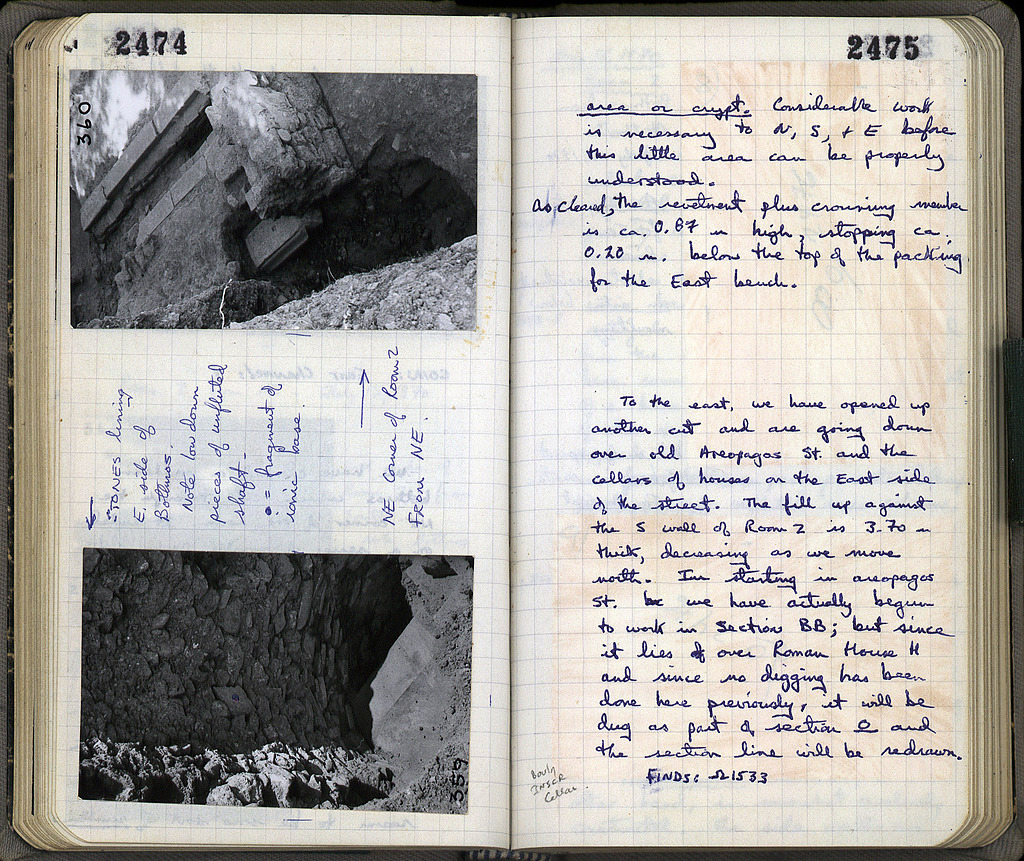 2474
360
STONES lining
E. side of
Bothros.
Note low down
pieces of unfluted
shaft.
• = fragment of
ionic base.
NE Corner of Room 2
From NE.
359
2475
area or crypt. Considerable work
is necessary to N, S, + E before
this little area can be properly
understood.
As cleared, the revetment plus crowning member
is ca. 0.87 m high, stopping ca.
0.20 m. below the top of the packing
for the East bench.
To the east, we have opened up
another cut and are going down
over old Areopagos St. and the
cellars of houses on the East side
of the street. The fill up against
the S wall of Room 2 is 3.70 m
thick, decreasing as we move
north. In starting in areopagos
St. we have actually begun
to work in Section BB; but since
it lies over Roman House H
and since no digging has been
done here previously, it will be
dug as part of section Ω and
the section line will be redrawn.
FINDS: Ω 1533
Cellar.